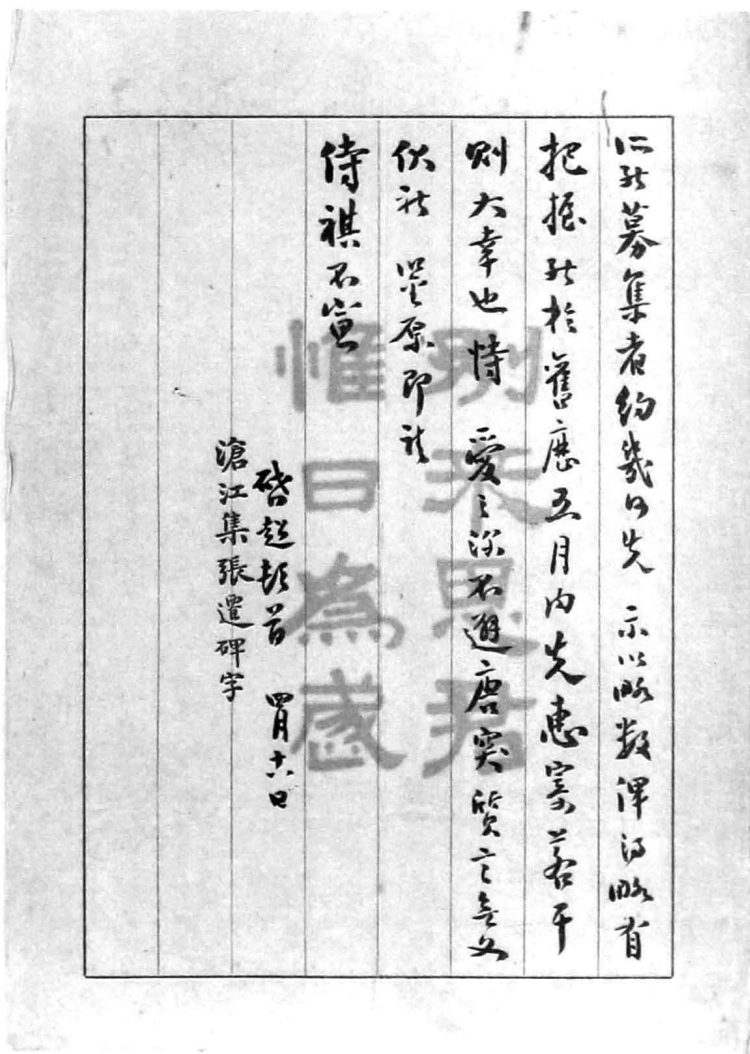 所能募集者約幾何先 示以略數俾得略有
把握能於舊曆五月內先惠寄若干
則大幸也 恃 愛之深不避唐突質言無文
伏祈 鑒原即請
侍祺不宣
啓超頓首 四月十六日
滄江集張遷碑字
別来思君
惟日為歲